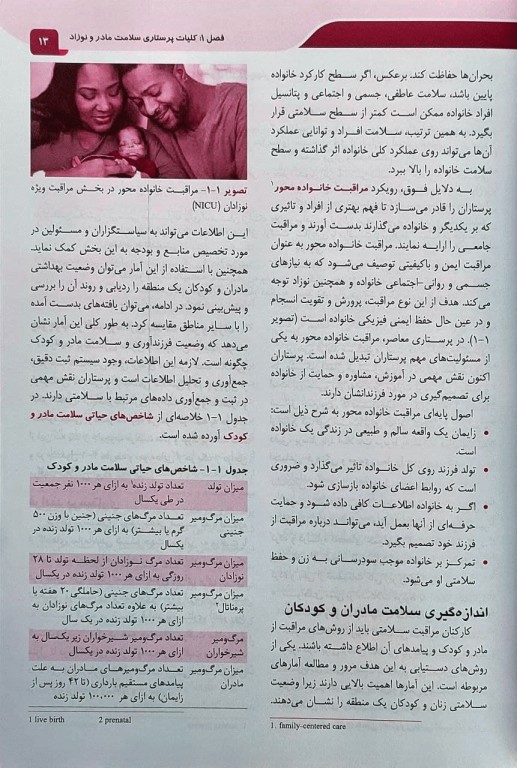 فصل ۱: کلیات پرستاری سلامت مادر و نوزاد
۱۳
بحران‌ها حفاظت کند. برعکس، اگر سطح کارکرد خانواده
پایین باشد، سلامت عاطفی، جسمی و اجتماعی و پتانسیل
افراد خانواده ممکن است کمتر از سطح سلامتی قرار
بگیرد. به همین ترتیب، سلامت افراد و توانایی عملکرد
آن‌ها می‌تواند روی عملکرد کلی خانواده اثر گذاشته و سطح
سلامت خانواده را بالا ببرد.
به دلایل فوق، رویکرد مراقبت خانواده محور۱
پرستاران را قادر می‌سازد تا فهم بهتری از افراد و تاثیری
که بر یکدیگر و خانواده می‌گذارند بدست آورند و مراقبت
جامعی را ارایه نمایند. مراقبت خانواده محور به عنوان
مراقبت ایمن و باکیفیتی توصیف می‌شود که به نیازهای
جسمی و روانی-اجتماعی خانواده و همچنین نوزاد توجه
می‌کند. هدف از این نوع مراقبت، پرورش و تقویت انسجام
و در عین حال حفظ ایمنی فیزیکی خانواده است (تصویر
۱-۱). در پرستاری معاصر، مراقبت خانواده محور به یکی
از مسئولیت‌های مهم پرستاران تبدیل شده است. پرستاران
اکنون نقش مهمی در آموزش، مشاوره و حمایت از خانواده
برای تصمیم‌گیری در مورد فرزندانشان دارند.
اصول پایه‌ای مراقبت خانواده محور به شرح ذیل است:
• زایمان یک واقعه سالم و طبیعی در زندگی یک خانواده
است.
• تولد فرزند روی کل خانواده تاثیر می‌گذارد و ضروری
است که روابط اعضای خانواده بازسازی شود.
• اگر به خانواده اطلاعات کافی داده شود و حمایت
حرفه‌ای از آنها بعمل آید، می‌توانند درباره مراقبت از
فرزند خود تصمیم بگیرد.
• تمرکز بر خانواده موجب سودرسانی به زن و حفظ
سلامتی او می‌شود.
اندازه‌گیری سلامت مادران و کودکان
کارکنان مراقبت سلامتی باید از روش‌های مراقبت از
مادر و کودک و پیامدهای آن اطلاع داشته باشند. یکی از
روش‌های دستیابی به این هدف مرور و مطالعه آمارهای
مربوطه است. این آمارها اهمیت بالایی دارند زیرا وضعیت
سلامتی زنان و کودکان یک منطقه را نشان می‌دهند.
1. family-centered care
تصویر ۱-۱- مراقبت خانواده محور در بخش مراقبت ویژه
نوزادان (NICU)
این اطلاعات می‌تواند به سیاستگزاران و مسئولین در
مورد تخصیص منابع و بودجه به این بخش کمک نماید.
همچنین با استفاده از این آمار می‌توان وضعیت بهداشتی
مادران و کودکان یک منطقه را ردیابی و روند آن را بررسی
و پیش‌بینی نمود. در ادامه، می‌توان یافته‌های بدست آمده
را با سایر مناطق مقایسه کرد. به طور کلی این آمار نشان
می‌دهد که وضعیت فرزندآوری و سلامت مادر و کودک
چگونه است. لازمه این اطلاعات، وجود سیستم ثبت دقیق،
جمع‌آوری و تحلیل اطلاعات است و پرستاران نقش مهمی
در ثبت و جمع‌آوری داده‌های مرتبط با سلامتی دارند. در
جدول ۱-۱ خلاصه‌ای از شاخص‌های حیاتی سلامت مادر و
کودک آورده شده است.
جدول ۱-۱- شاخص‌های حیاتی سلامت مادر و کودک
میزان تولد تعداد تولد زنده۱ به ازای هر ۱۰۰۰ نفر جمعیت
در طی یکسال
میزان مرگ‌ومیر تعداد مرگ‌های جنینی (جنین با وزن ۵۰۰
جنینی گرم یا بیشتر) به ازای هر ۱۰۰۰ تولد زنده در
یکسال
میزان مرگ‌ومیر تعداد مرگ نوزادان از لحظه تولد تا ۲۸
نوزادان روزگی به ازای هر ۱۰۰۰ تولد زنده در یکسال
میزان مرگ‌ومیر تعداد مرگ‌های جنینی (حاملگی ۲۰ هفته یا
پرناتال۲ بیشتر) به علاوه تعداد مرگ‌های نوزادان به
ازای هر ۱۰۰۰ تولد زنده در یک سال
مرگ‌ومیر تعداد مرگ‌های شیرخواران زیر یکسال به
شیرخواران ازای هر ۱۰۰۰ تولد زنده در یکسال
میزان مرگ‌ومیر تعداد مرگ‌ومیرهای مادران به علت
مادران پیامدهای مستقیم بارداری (تا ۴۲ روز پس از
زایمان) به ازای هر ۱۰۰,۰۰۰ تولد زنده
1 live birth 2 prenatal